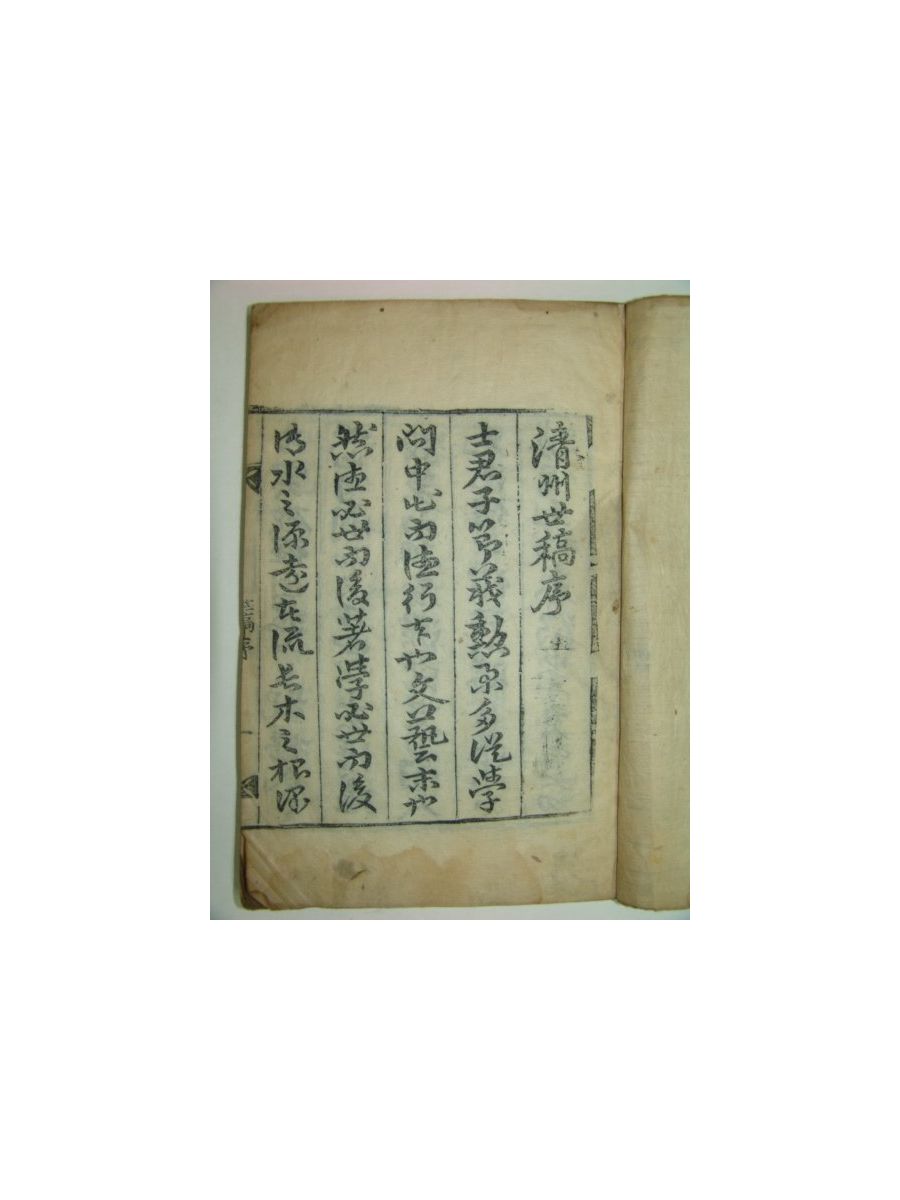 清州世稿序
士君子節義勳業多從學
問中出而德行本也文藝末也
然德必世而後著學必世而後
水之源遠者流長木之根深
世稿序 一